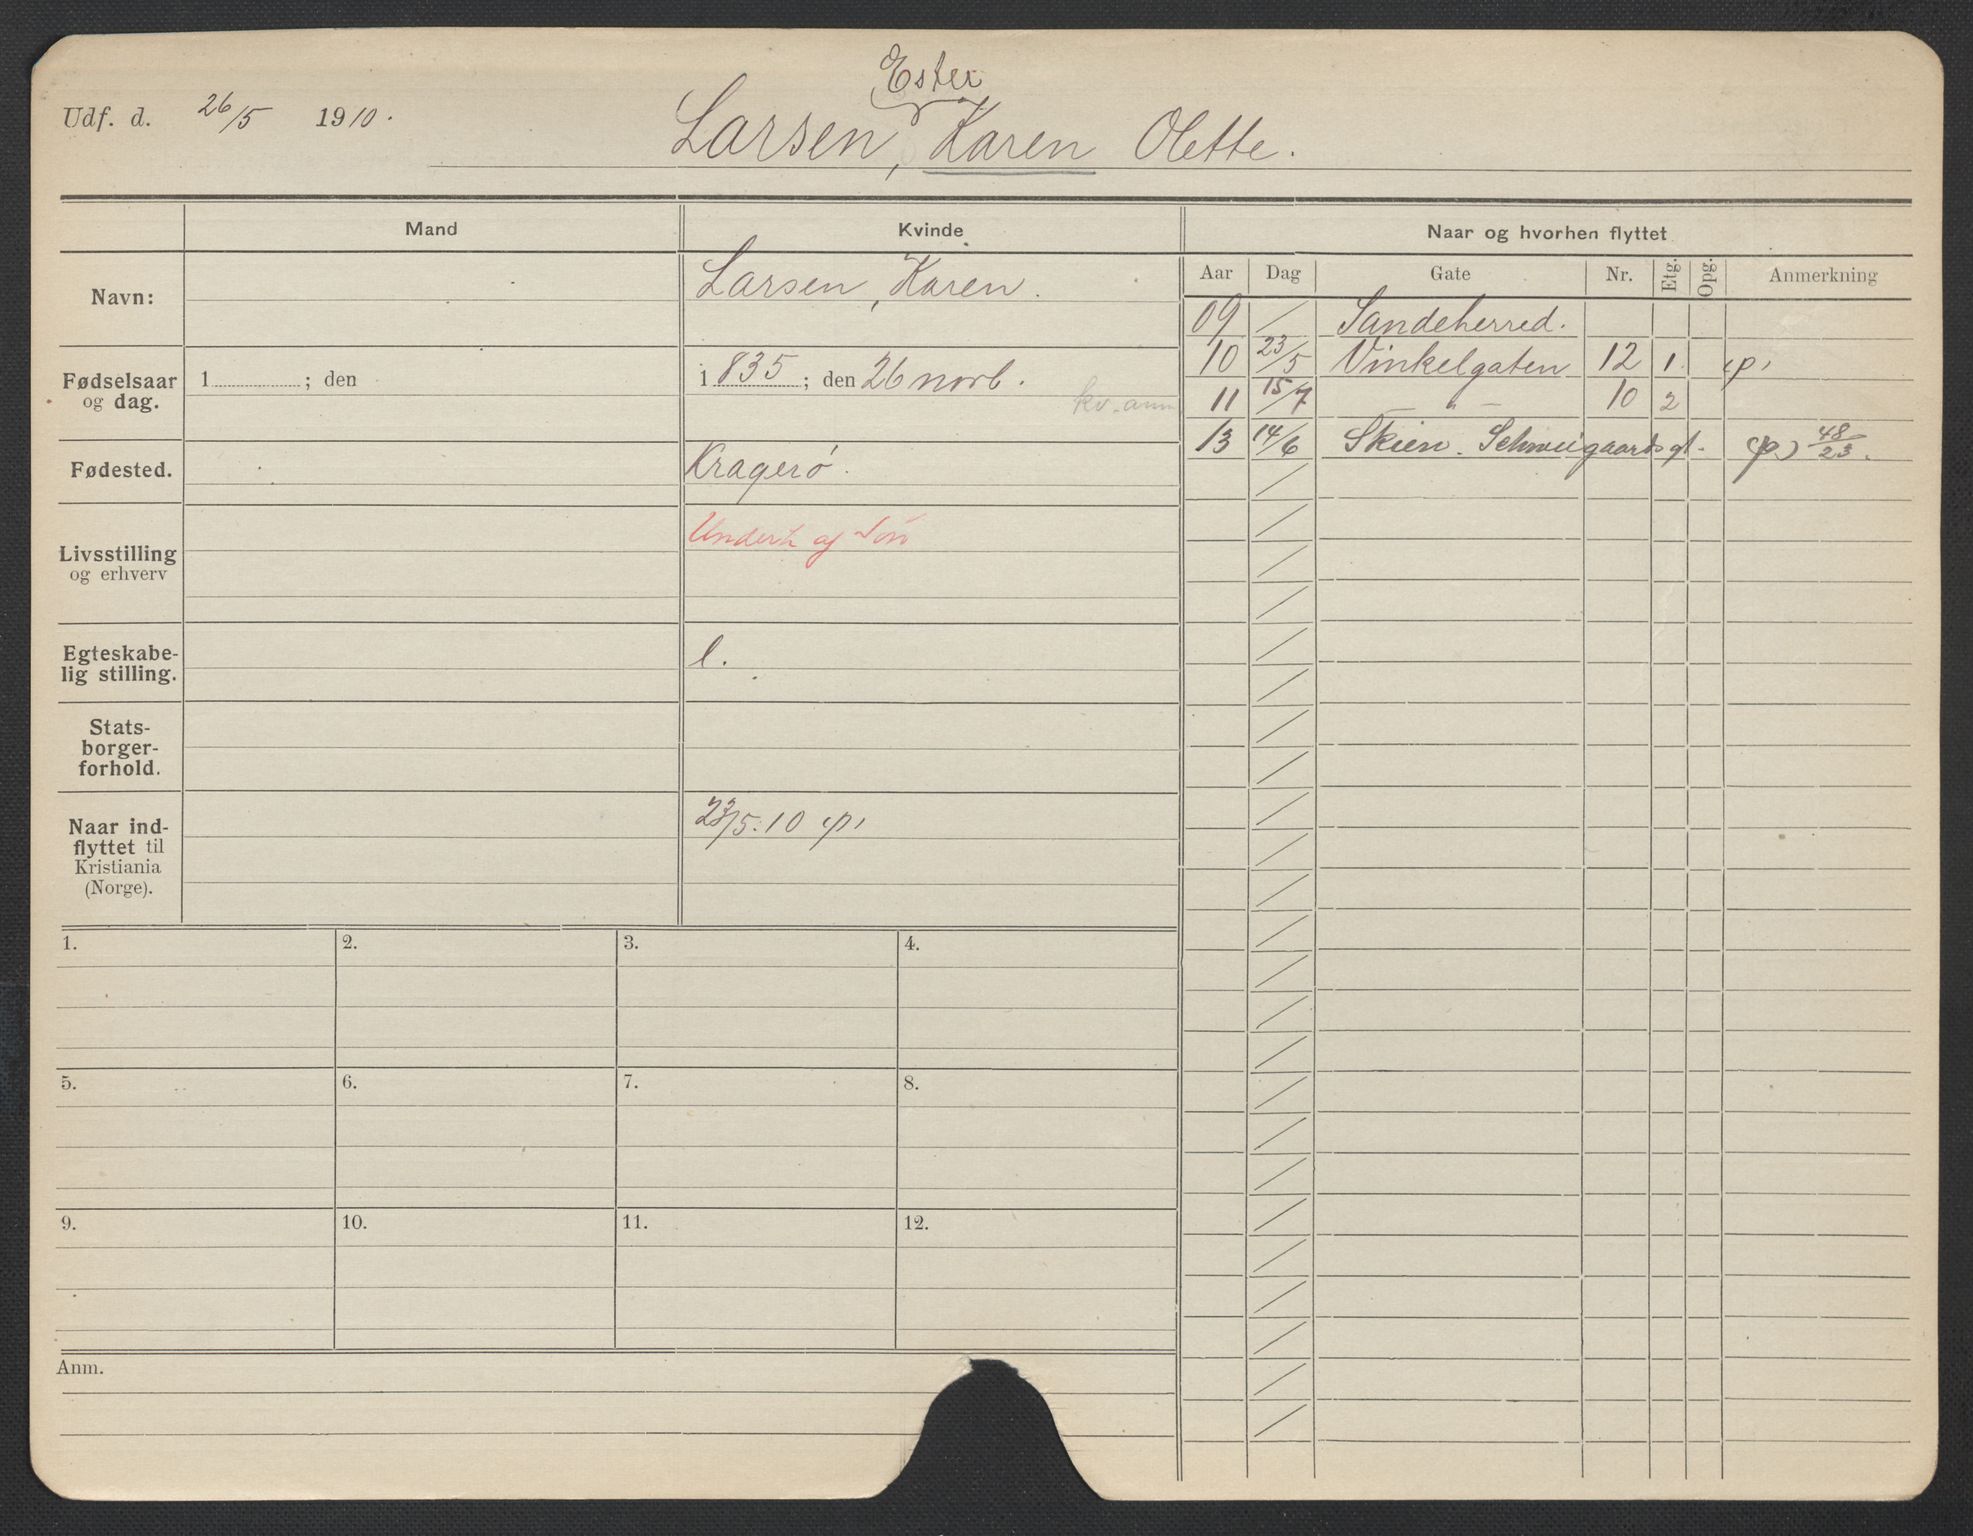 Ester
Udf. d. 26/5 1910. Larsen, Karen Olette.
Mand Kvinde Naar og hvorhen flyttet
Aar Dag Gate Nr. Etg. Opg. Anmerkning
Navn: Larsen, Karen.
09 / Sandeherred.
10 23/5 Vinkelgaten 12 1. (p)
Fødselsaar og dag. 1 ; den 1835 ; den 26 novb.
kv. anm
11 15/7 — " — 10 2
13 14/6 Skien. Schweigaardsgt. (p) 48/23.
Fødested. Kragerø.
Livsstilling og erhverv
Underh af Søn
Egteskabe-
lig stilling. l.
Stats-
borger-
forhold.
Naar ind-
flyttet til
Kristiania
(Norge).
23/5.10 (p)
1. 2. 3. 4.
5. 6. 7. 8.
9. 10. 11. 12.
Anm.